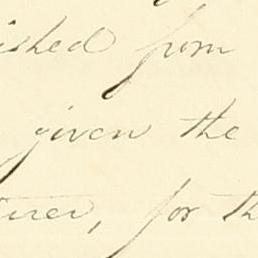 ished from
given the
turer, for th